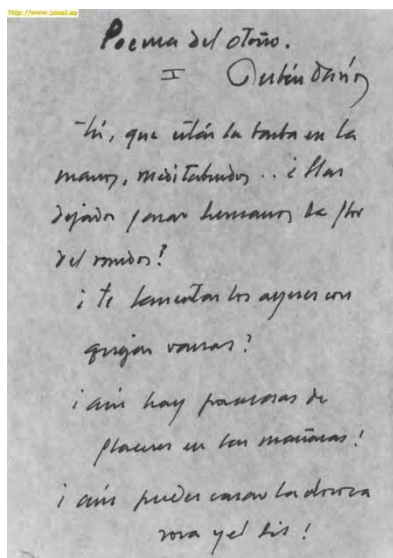 http://www.oocel.es
Poema del otoño.
I Rubén Darío
Tú, que estás la barba en la
mano, meditabundo.. ¿Has
dejado pasar hermano, la flor
del mundo?
¿te lamentas los ayeres con
quejas vanas?
¡aún hay promesas de
placeres en las mañanas!
¡aún puedes casar la olorosa
rosa y el lis!